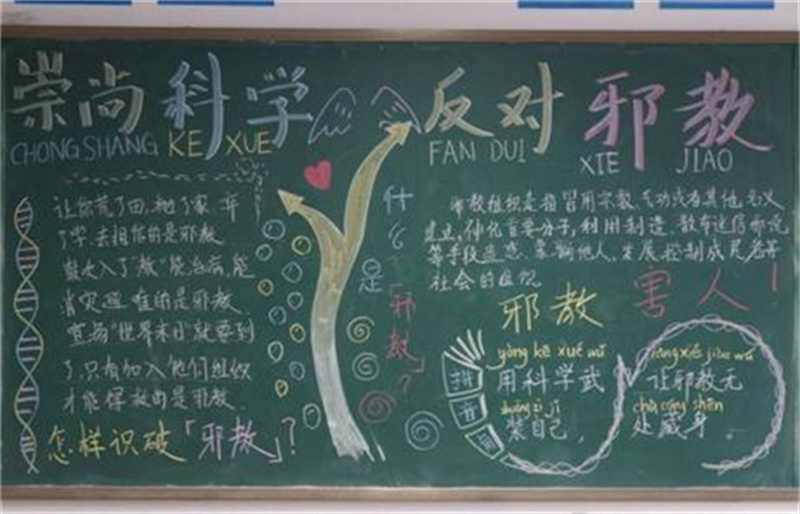 崇尚科学 反对邪教
CHONG SHANG KE XUE FAN DUI XIE JIAO
让你荒了田,抛了家,弃
了学,去相信的是邪教.
鼓吹入了"教"能治病,能
消灾避难的是邪教.
宣扬"世界末日"就要到
了,只有加入他们组织
才能得救的是邪教.
怎样识破「邪教」?
什么是「邪教」?
邪教组织是指冒用宗教、气功或者其他名义
建立,神化首要分子,利用制造、散布迷信邪说
等手段蛊惑、蒙骗他人,发展控制成员危害
社会的组织
邪教害人!
拼音
yòng kē xué wǔ
用科学武
zhuāng zì jǐ
装自己,
ràng xié jiào wú
让邪教无
chù cáng shēn
处藏身.